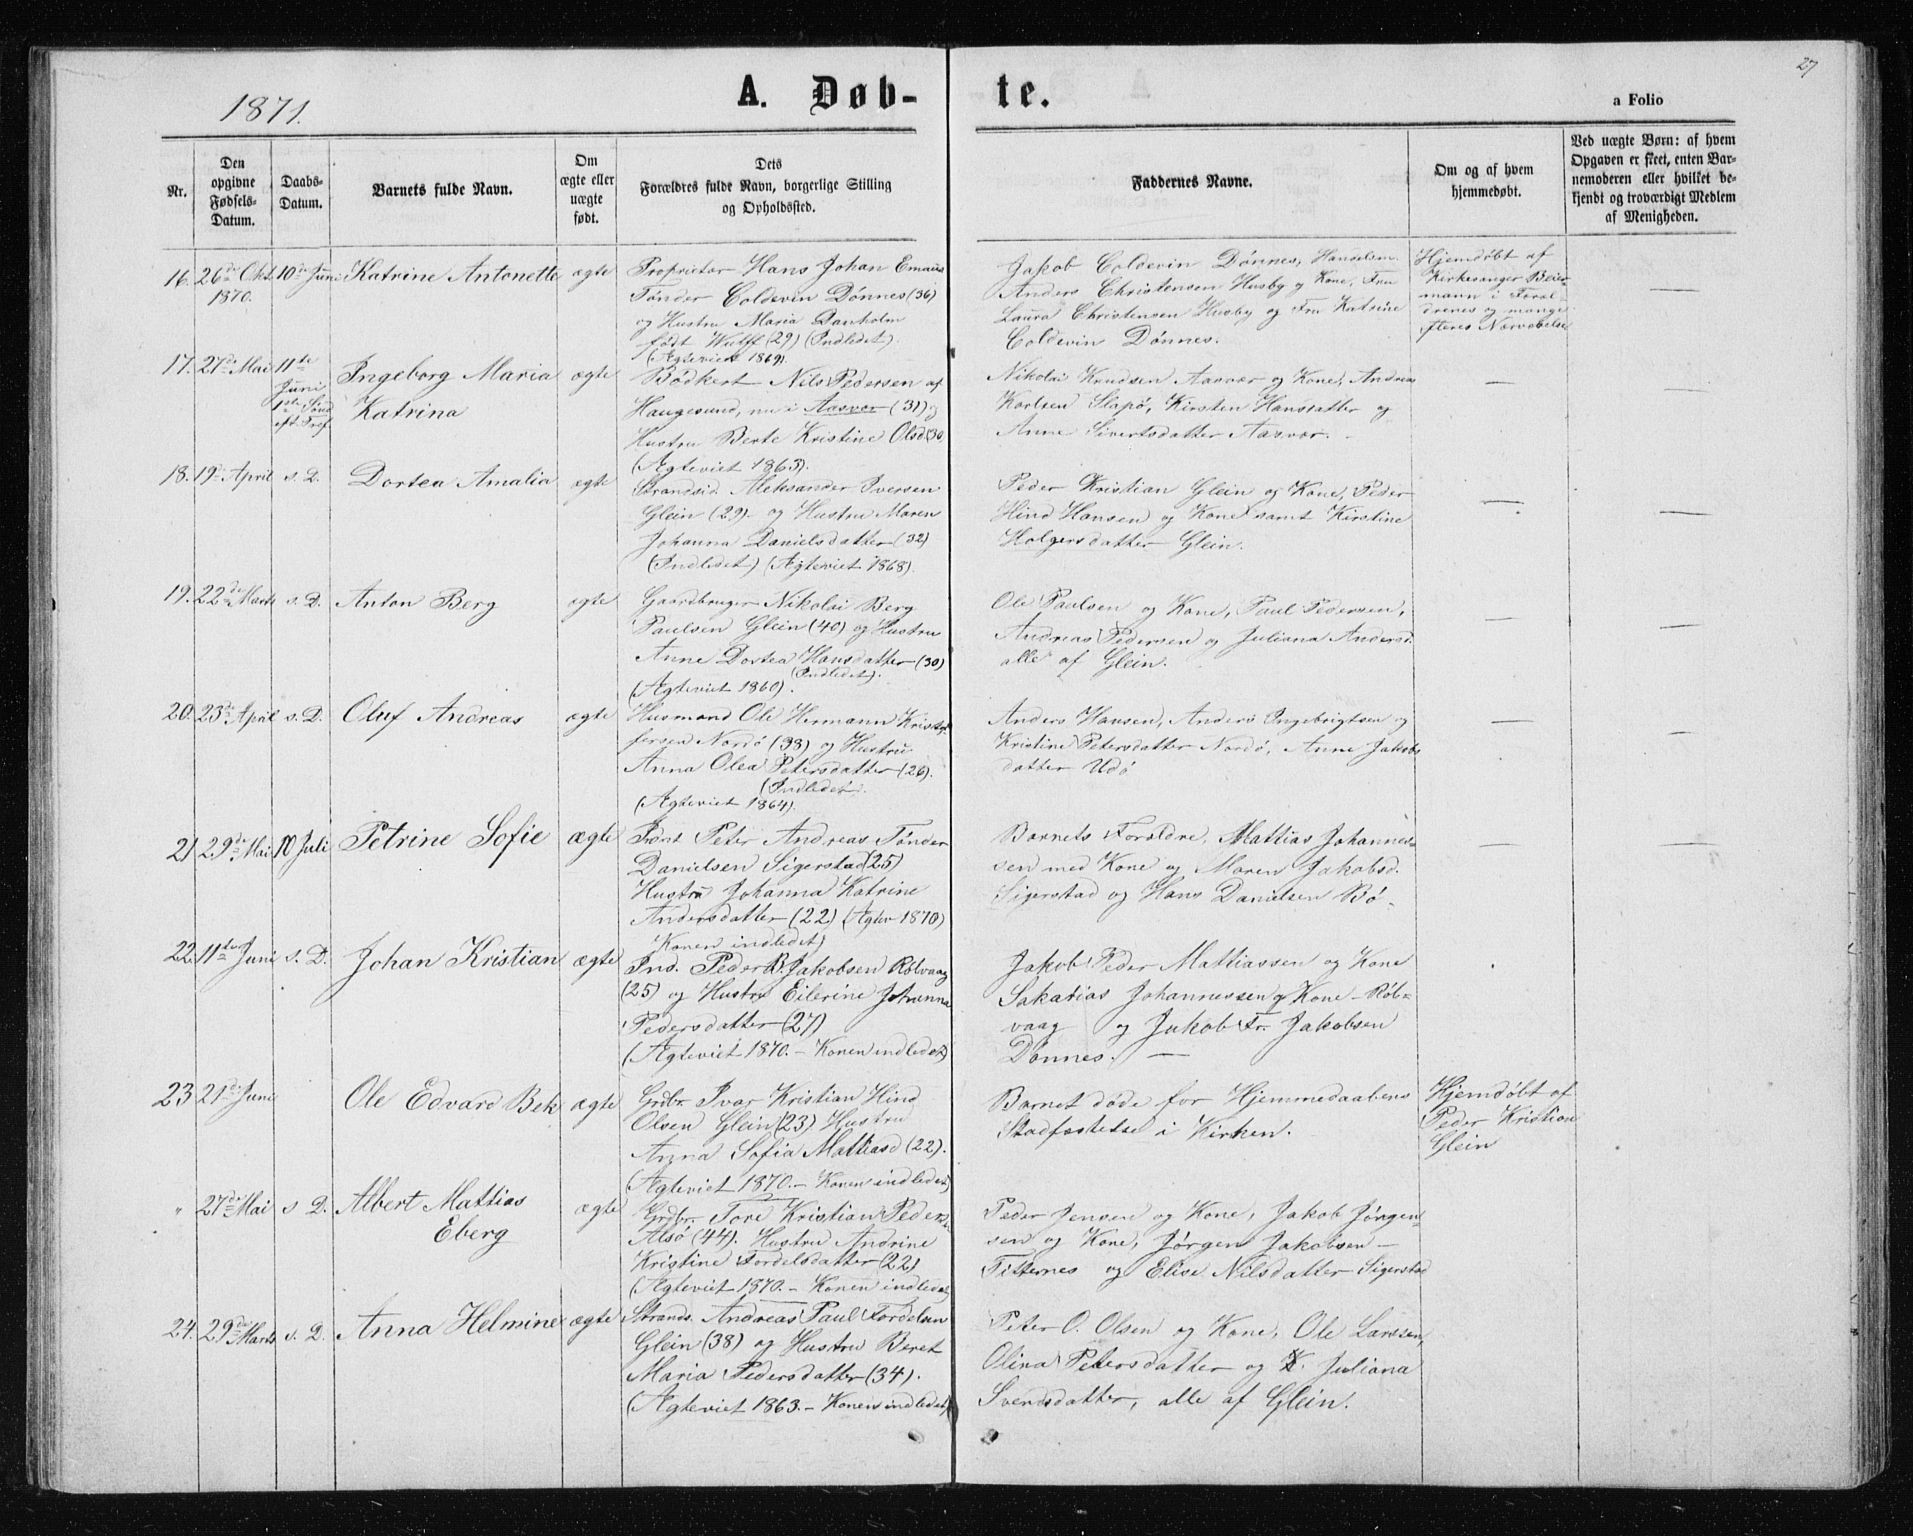 27
1871.
A. Døb-
te.
a Folio
Nr.
Den
opgivne
Fødsels-
Datum.
Daabs-
Datum.
Barnets fulde Navn.
Om
ægte eller
uægte
født.
Dets
Forældres fulde Navn, borgerlige Stilling
og Opholdssted.
Faddernes Navne.
Om og af hvem
hjemmedøbt.
Ved uægte Børn: af hvem
Opgaven er skeet, enten Bar-
nemoderen eller hvilket be-
kjendt og troværdigt Medlem
af Menigheden.
16. 26de Okt. 1870. 10de Juni Katrine Antonette ægte
Proprietær Hans Johan Emaus
Tønder Coldevin Dønnes (36)
og Hustru Maria Danholm
født Wulff (29) (Indledet).
(Ægteviet 1869).
Jakob Coldevin Dønnes, Handelsm.
Anders Christensen Husby og Kone, Fru
Laura Christensen Husby og Fru Katrine
Coldevin Dønnes.
Hjemdøbt af
Kirkesanger Beier-
mann i Foræl-
drenes og mange
fleres Nærværelse
—
17. 27de Mai 11te Juni 1ste Sønd eft. Tref.
Ingeborg Maria
Katrina
ægte
Bødkert Nils Pedersen af
Haugesund, nu i Aasvær (31) og
Hustru Berte Kristine Olsd (30
(Ægteviet 1863).
Nikolai Knudsen Aasvær og Kone, Andreas
Karlsen Slapø, Kirsten Hansdatter og
Anne Sivertsdatter Aasvær. -
—
—
18. 19de April s. D. Dortea Amalia ægte
Strandsid. Aleksander Iversen
Glein (29) og Hustru Maren
Johanna Danielsdatter (32)
(Indledet) (Ægteviet 1868).
Peder Kristian Glein og Kone, Peder
Hind Hansen og Kone samt Kirstine
Holgersdatter Glein.
—
—
19. 22de Marts s. D. Anton Berg ægte
Gaardbruger Nikolai Berg
Paulsen Glein (40) og Hustru
Anne Dortea Hansdatter (30)
(Indledet).
(Ægteviet 1860).
Ole Paulsen og Kone, Paul Pedersen,
Andreas Pedersen og Juliana Andersd.
alle af Glein.
—
—
20. 23de April s. D. Oluf Andreas ægte
Husmand Ole Hermann Kristof-
fersen Nordø (38) og Hustru
Anna Olea Petersdatter (26).
(Indledet).
(Ægteviet 1864).
Anders Hansen, Anders Ingebrigtsen og
Kristine Petersdatter Nordø, Anne Jakobs
datter Udø
—
—
21 29de Mai 10 Juli Petrine Sofie ægte
Peter Andreas Tønder
Danielsen Sigerstad (25)
Hustru Johanna Katrine
Andersdatter (22) (Ægtev 1870)
Konen indledet)
Barnets Forældre, Mattias Johannes-
sen med Kone og Maren Jakobsd.
Sigerstad og Hans Danielsen Bø.
—
—
22. 11te Juni s. D. Johan Kristian ægte
Ind. Peder B. Jakobsen Rølvaag
(25) og Hustru Eilerine Johanna
Pedersdatter (27)
(Ægteviet 1870. - Konen indledet)
Jakob Peder Mattiassen og Kone
Sakarias Johannessen og Kone - Røl-
vaag og Jakob Fr. Jakobsen
Dønnes. —
23 21de Juni Ole Edvard Bek ægte
Grdbr. Ivar Kristian Hind
Olsen Glein (23) Hustru
Anna Sofia Mattiasd (22).
(Ægteviet 1870. - Konen indledet)
Barnet døde før Hjemmedaabens
Stadfæstelse i Kirken.
Hjemdøbt af
Peder Kristian
Glein
" 27de Mai s D. Albert Mattias
Eberg
ægte
Grdbr. Tore Kristian Peders
Alsø (44). Hustru Andrine
Kristine Tordelsdatter (22)
(Ægteviet 1870. - Konen indledet
Peder Jensen og Kone, Jakob Jørgen-
sen og Kone, Jørgen Jakobsen -
Titternes og Elise Nilsdatter Sigerstad
24. 29de Marts s. D. Anna Helmine ægte
Strands. Andreas Paul Tordelsen
Glein (38) og Hustru Beret
Maria Pedersdatter (34).
(Ægteviet 1863. - Konen indledet)
Peter O. Olsen og Kone, Ole Larssen,
Olina Petersdatter og K. Juliana
Svendsdatter, alle af Glein.